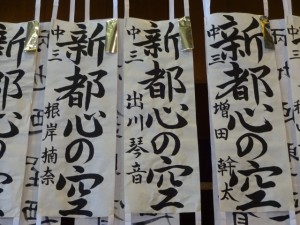 新都心の空
中三 増田 幹太
新都心の空
中三 出川 琴音
新都心の空
中三 根岸 楠奈